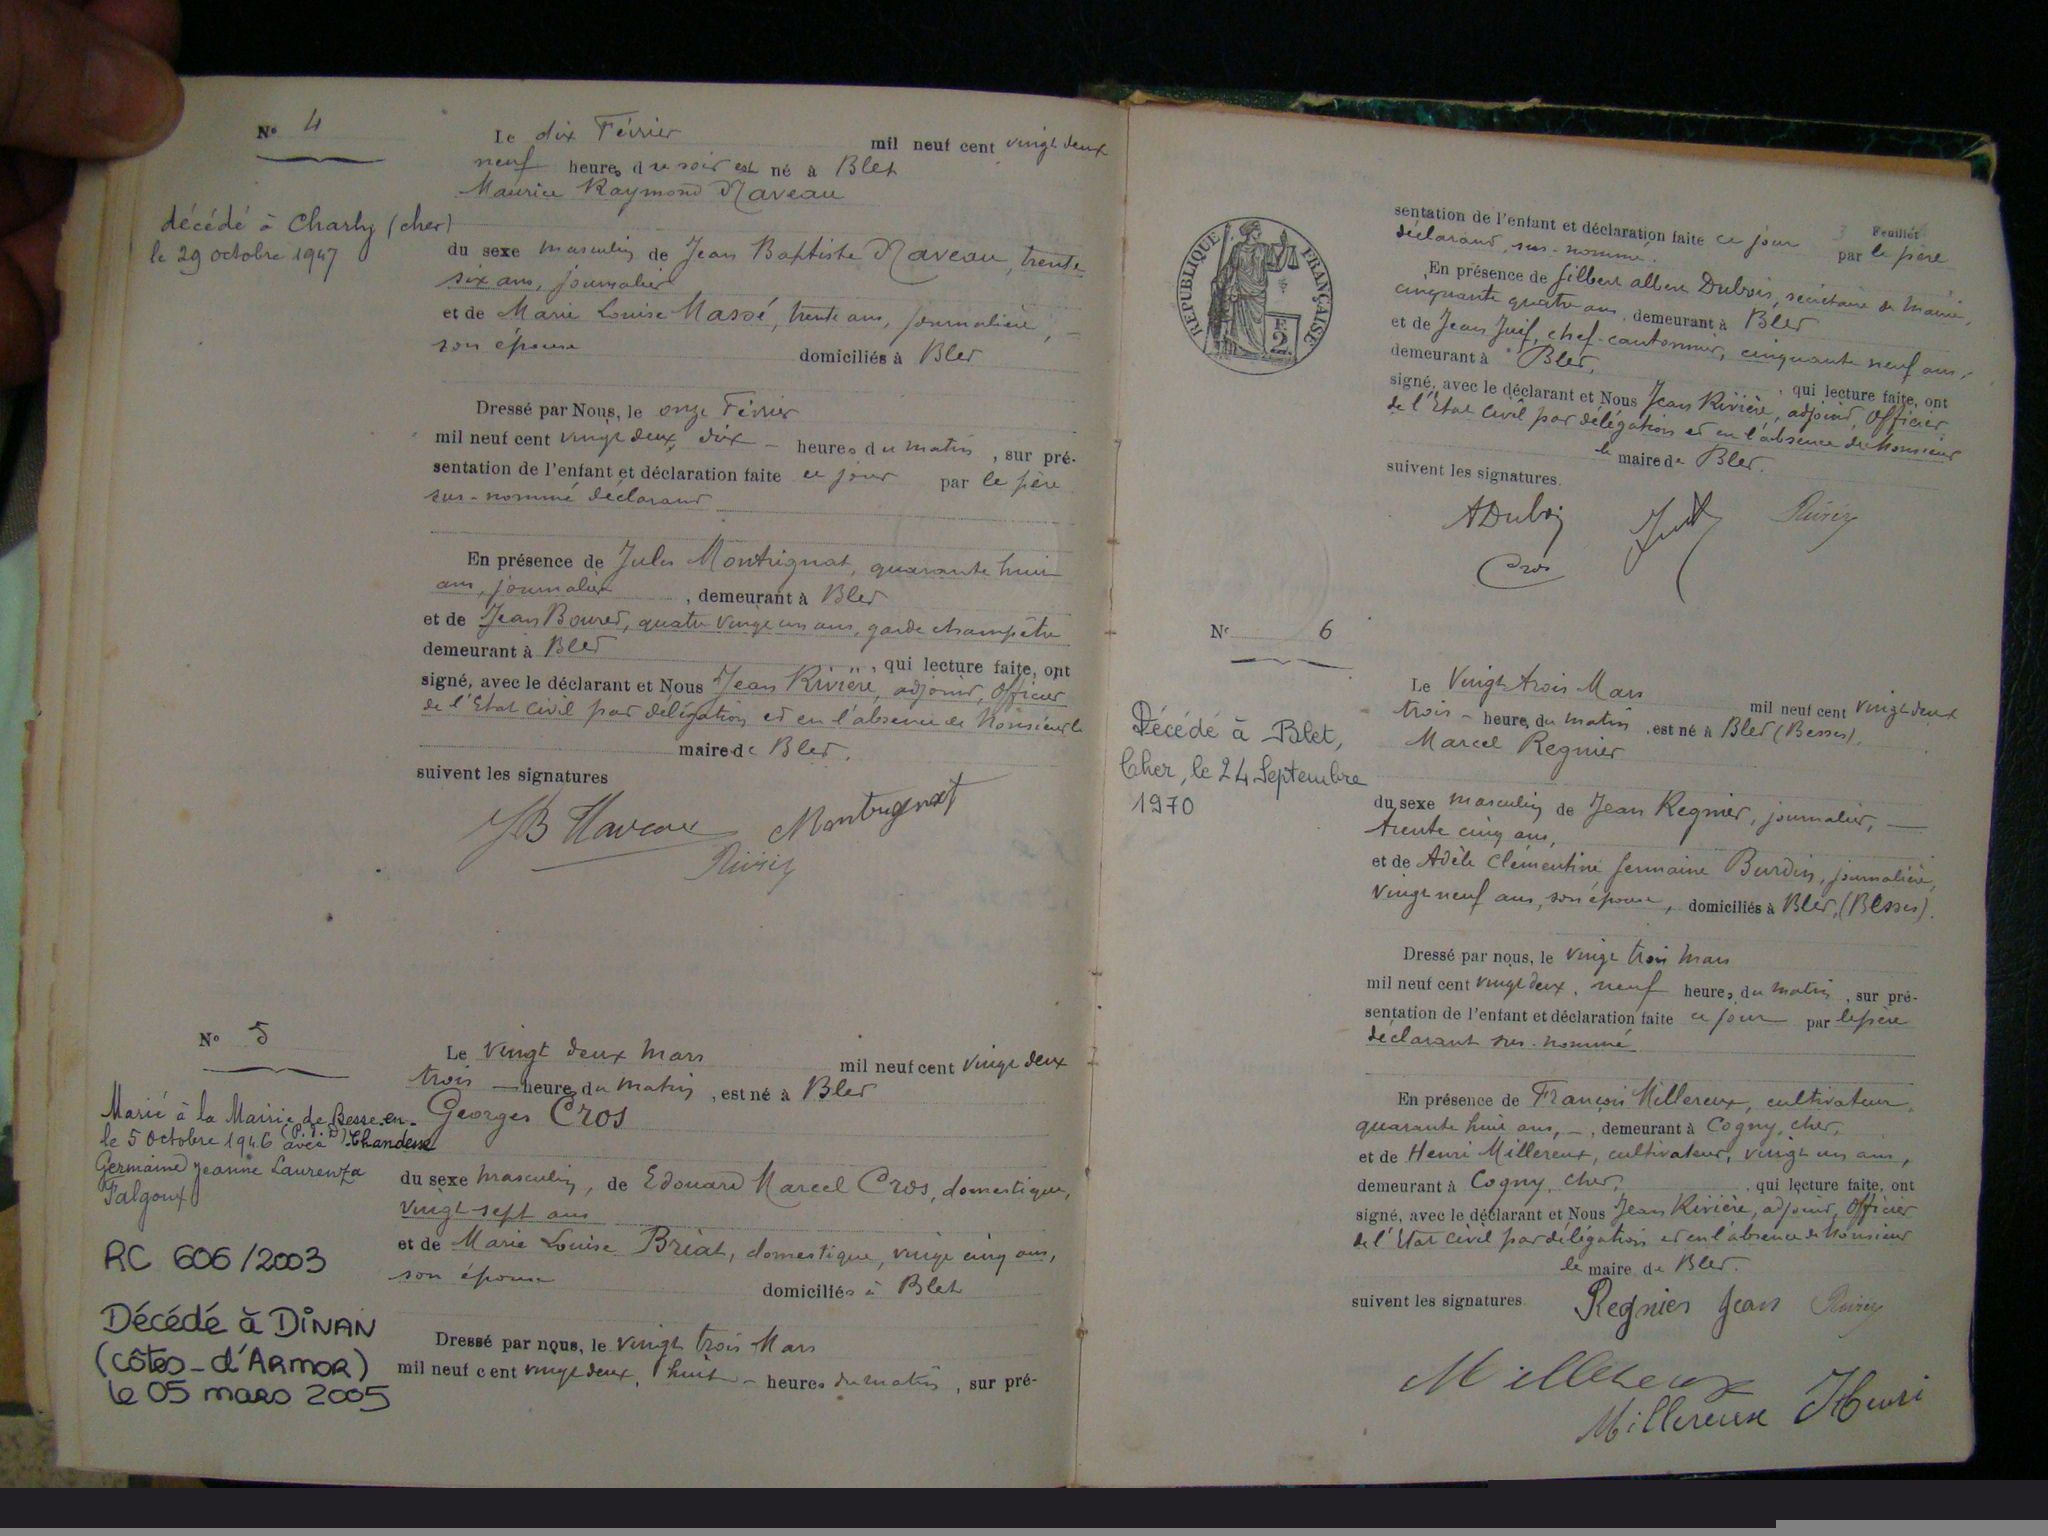 N° 4
Le dix Février mil neuf cent vingt deux
neuf heures du soir est né à Blet
Maurice Raymond Naveau
décédé à Charly (cher)
le 29 octobre 1947
du sexe masculin de Jean Baptiste Naveau, trente
six ans, journalier
et de Marie Louise Massé, trente ans, journalière,
son épouse domiciliés à Blet
Dressé par Nous, le onze Février
mil neuf cent vingt deux, dix - heures du matin, sur pré-
sentation de l'enfant et déclaration faite ce jour par le père
sus-nommé déclarant
En présence de Jules Montrignat, quarante huit
ans, journalier, demeurant à Blet
et de Jean Bouret, quatre vingt un ans, garde champêtre
demeurant à Blet, qui lecture faite, ont
signé, avec le déclarant et Nous Jean Rivière, adjoint, Officier
de l'Etat Civil par délégation et en l'absence de Monsieur le
maire de Blet.
suivent les signatures
JB Naveau Montrignat
Rivière
N° 5
Le vingt deux mars mil neuf cent vingt deux
trois - heures du matin, est né à Blet
Georges Cros
Marié à la Mairie de Besse-en-
Chandesse (P. de D.)
le 5 Octobre 1946 avec
Germaine Jeanne Laurenza
Falgoux
RC 606/2003
Décédé à DINAN
(côtes-d'ARMOR)
le 05 mars 2005
du sexe masculin, de Edouard Marcel Cros, domestique,
vingt-sept ans
et de Marie Louise Briat, domestique, vingt cinq ans,
son épouse domiciliés à Blet
Dressé par nous, le vingt trois Mars
mil neuf cent vingt deux, huit - heures du matin, sur pré-
Feuillet
3
REPUBLIQUE FRANÇAISE
E
2
sentation de l'enfant et déclaration faite ce jour par le père
déclarant, sus-nommé.
En présence de Gilbert albert Dubois, secrétaire de mairie,
cinquante quatre ans, demeurant à Blet
et de Jean Juif, chef-cantonnier, cinquante neuf ans,
demeurant à Blet, qui lecture faite, ont
signé, avec le déclarant et Nous Jean Rivière, adjoint, Officier
de l'Etat Civil par délégation et en l'absence de Monsieur
le maire de Blet.
suivent les signatures.
ADubois Juif Rivière
Cros
N° 6
Le Vingt trois Mars mil neuf cent vingt deux
trois - heures du matin, est né à Blet (Besses).
Marcel Regnier
Décédé à Blet,
Cher, le 24 Septembre
1970
du sexe masculin de Jean Regnier, journalier, -
trente cinq ans,
et de Adèle Clémentine Germaine Burdin, journalière,
vingt neuf ans, son épouse, domiciliés à Blet, (Besses).
Dressé par nous, le vingt trois mars
mil neuf cent vingt deux, neuf heures du matin, sur pré-
sentation de l'enfant et déclaration faite ce jour par le père
déclarant sus-nommé
En présence de François Millereux, cultivateur,
quarante huit ans, -, demeurant à Cogny, cher,
et de Henri Millereux, cultivateur, vingt un ans,
demeurant à Cogny, cher, qui lecture faite, ont
signé, avec le déclarant et Nous Jean Rivière, adjoint, Officier
de l'Etat Civil par délégation et en l'absence de Monsieur
le maire de Blet.
suivent les signatures Regnier Jean Rivière
Millereux
Millereux Henri